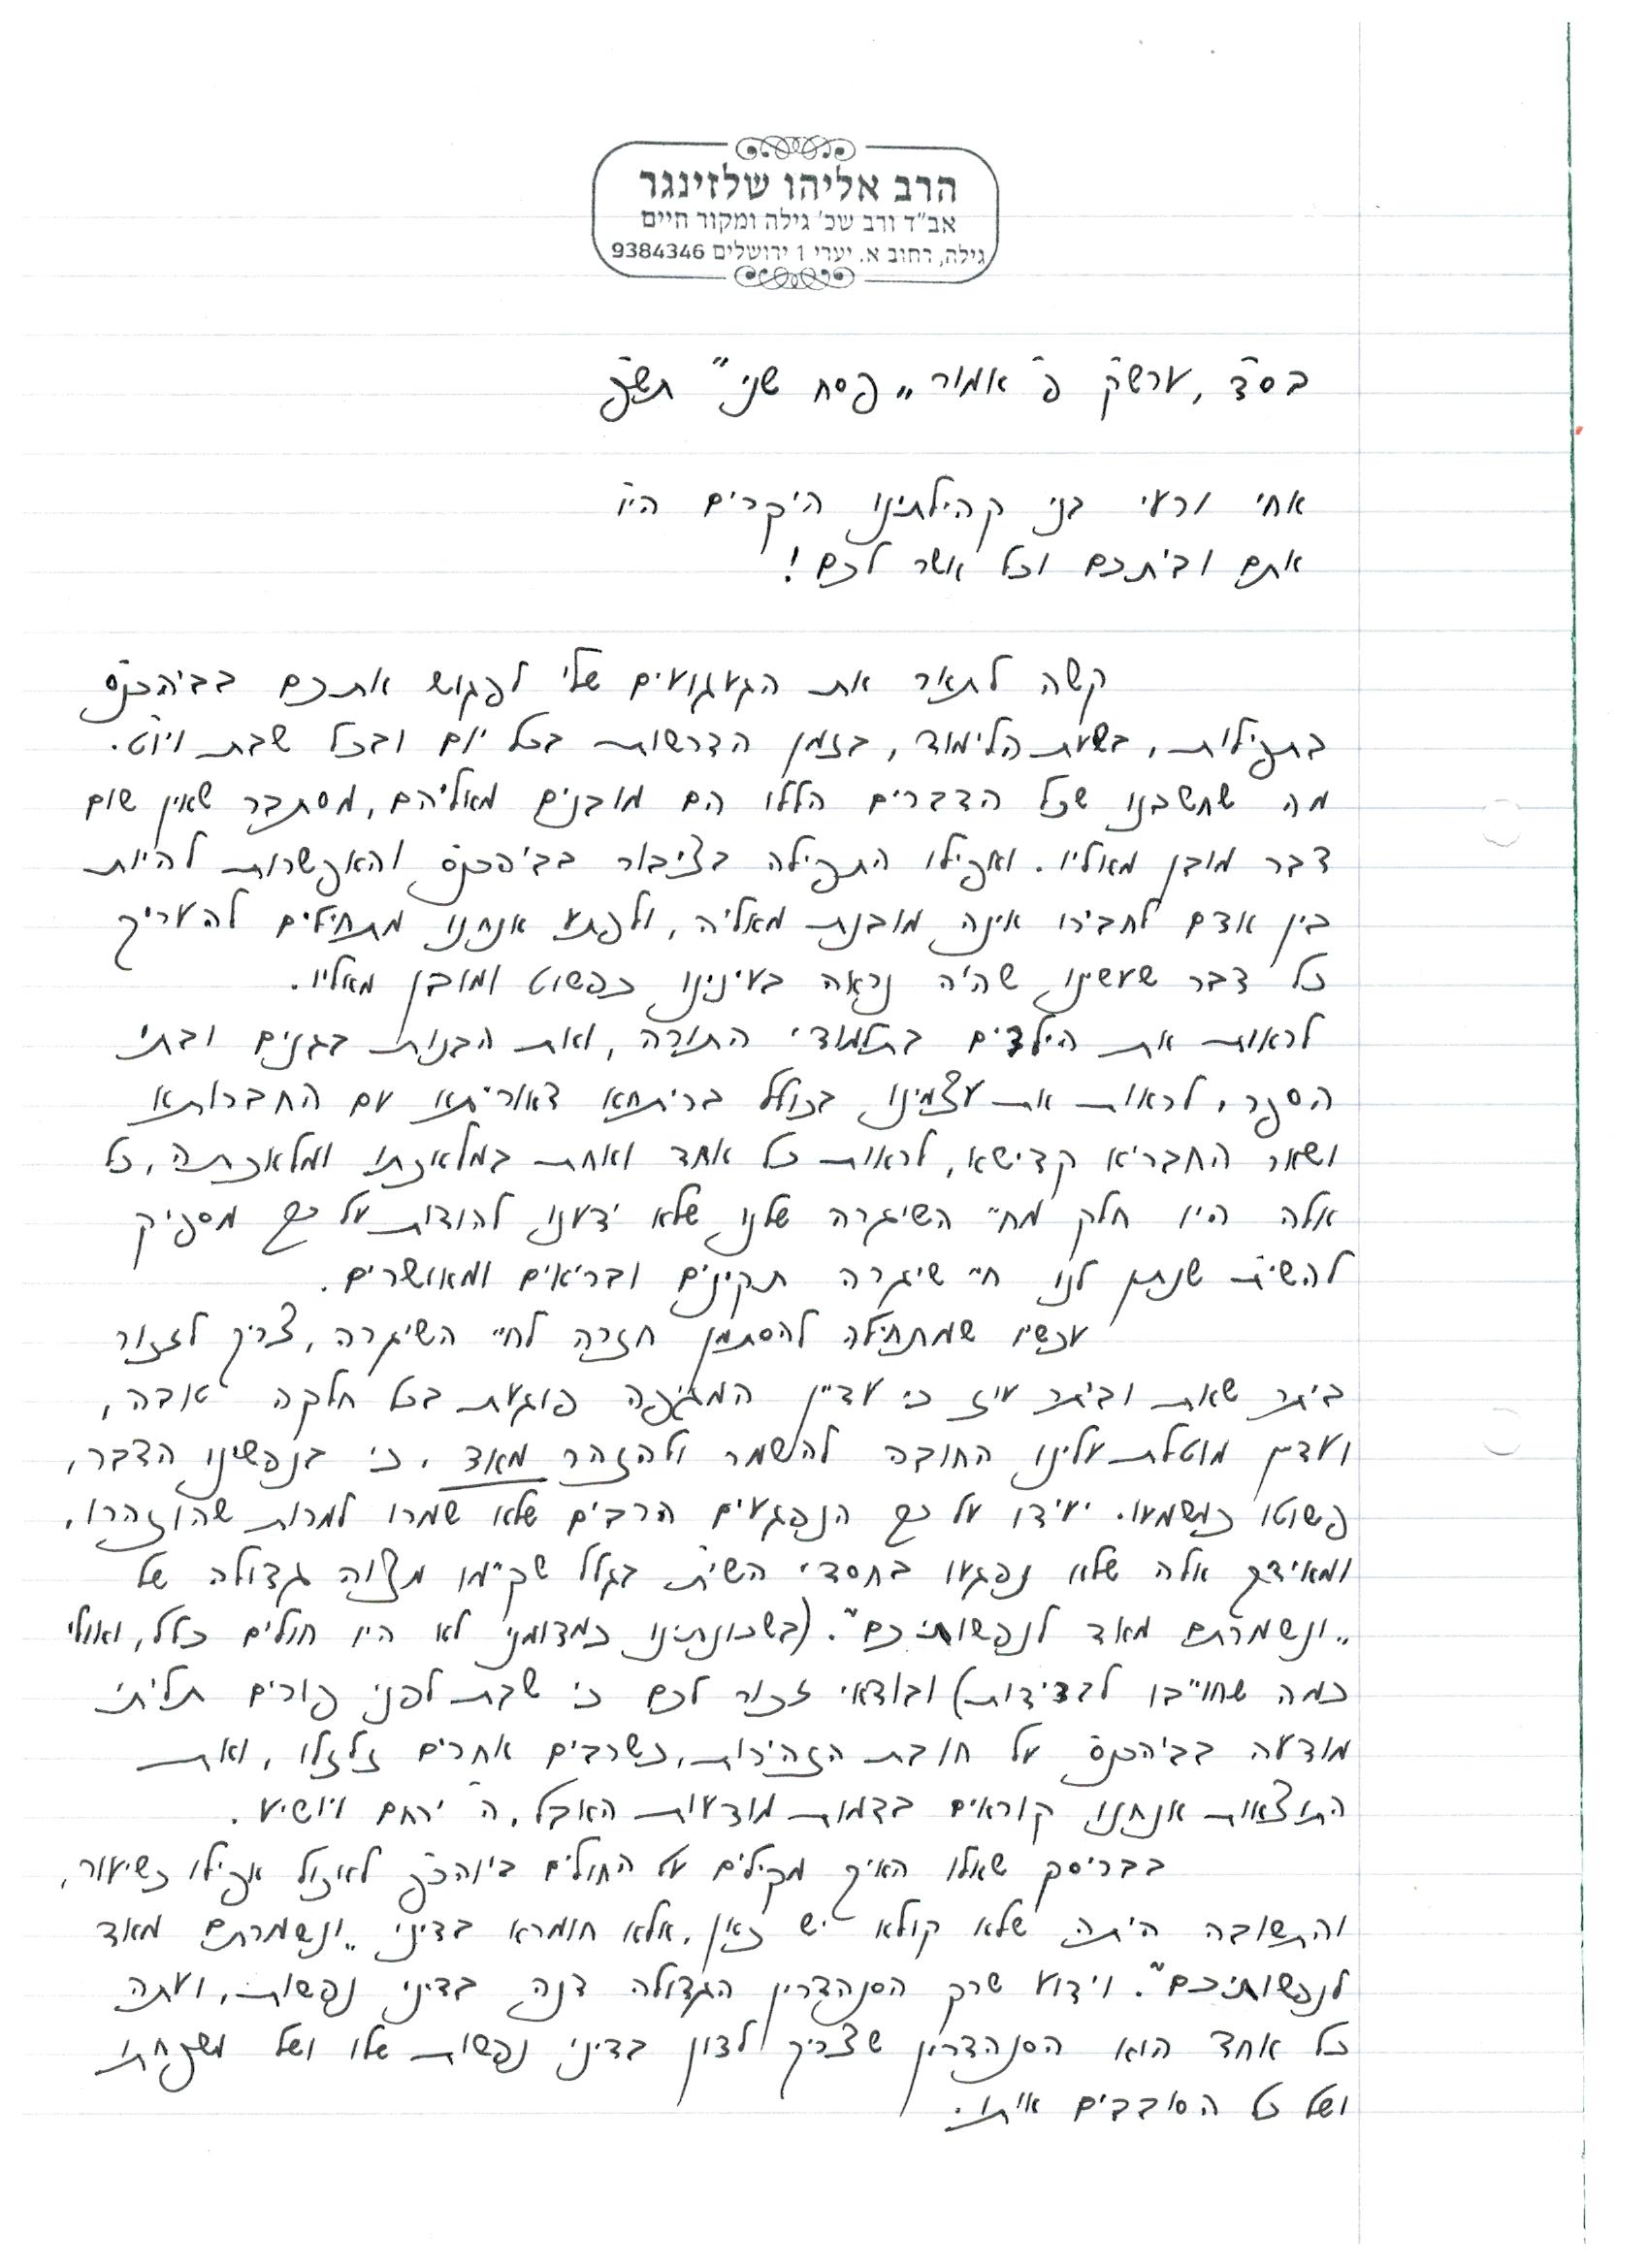 הרב אליהו שלזינגר
אב"ד ורב שכ' גילה ומקור חיים
גילה, רחוב א. יערי 1 ירושלים 9384346
בס"ד, ערש"ק פ' אמור „פסח שני" תש"פ
אחי ורעי בני קהילתינו היקרים הי"ו
אתם וביתכם וכל אשר לכם!
קשה לתאר את הגעגועים שלי לפגוש אתכם בביהכנ"ס
בתפילות, בשעת הלימוד, בזמן הדרשות בכל יום ובכל שבת ויו"ט.
מה שחשבנו שכל הדברים הללו הם מובנים מאליהם, מסתבר שאין שום
דבר מובן מאליו. ואפילו התפילה בציבור בביהכנ"ס והאפשרות להיות
בין אדם לחבירו אינה מובנת מאליה, ולפתע אנחנו מתחילים להעריך
כל דבר שעשינו שהיה נראה בעינינו כפשוט ומובן מאליו.
לראות את הילדים בתלמודי התורה, ואת הבנות בגנים ובתי
הספר, לראות את עצמינו בכולל בריתחא דאורייתא עם החברותא
ושאר החבריא קדישא, לראות כל אחד ואחת במלאכתו ומלאכתה, כל
אלה היו חלק מחיי השיגרה שלנו שלא ידענו להודות על כך מספיק
להשי"ת שנתן לנו חיי שיגרה תקינים ובריאים ומאושרים.
עכשיו שמתחילה להסתמן חזרה לחיי השיגרה, צריך לזכור
ביתר שאת וביתר עוז כי עדיין המגיפה פוגעת בכל חלקה טובה,
ועדיין מוטלת עלינו החובה להשמר ולהזהר מאד, כי בנפשינו הדבר,
פשוטו כמשמעו. יעידו על כך הנפגעים הרבים שלא שמרו למרות שהוזהרו,
ומאידך אלה שלא נפגעו בחסדי השי"ת בגלל שקיימו מצוה גדולה של
„ונשמרתם מאד לנפשותיכם". (בשכונתינו כמדומני לא היו חולים כלל, ואולי
כמה שחוייבו לבדידות) ובודאי זכור לכם כי שבת לפני פורים תליתי
מודעה בביהכנ"ס על חובת הזהירות, כשרבים אחרים זלזלו, ואת
התוצאות אנחנו קוראים בדמות מודעות האבל, ה' ירחם ויושיע.
בבריסק שאלו האיך מקילים על החולים ביוהכ"פ לאכול אפילו כשיעור,
והתשובה היתה שלא קולא יש כאן, אלא חומרא בדיני „ונשמרתם מאד
לנפשותיכם". וידוע שרק הסנהדרין הגדולה דנה בדיני נפשות, ועתה
כל אחד הוא הסנהדרין שצריך לדון בדיני נפשות שלו ושל משפחתו
ושל כל הסובבים איתו.